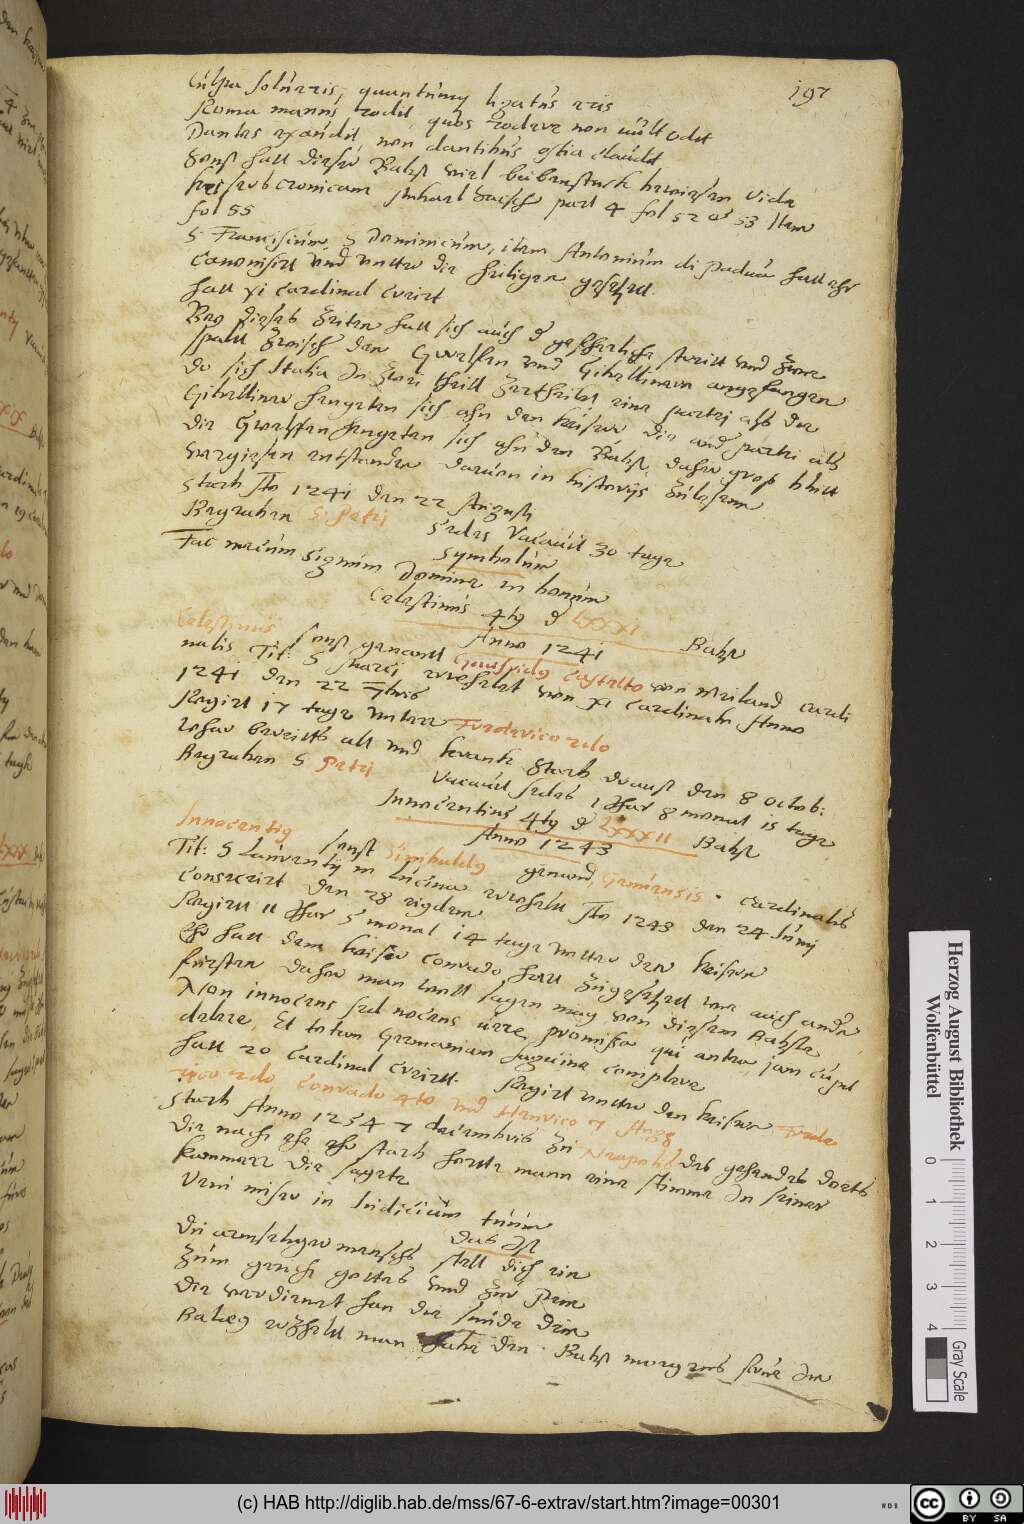 197
culpa solueris, quantumq ligatus eris
Roma manus rodit, quos rodere non uult odit
Dantes exaudit, non dantibus ostia claudit
Sonst hatt dieser Babst viel bubenstuck bewiesen vide
keisers cronicam part 4 fol 52 et 53 Item
fol 55
S Franciscum, S Dominicum, item Antonium di padua hatt ehr
Canonisirt vnd vntter die heiligen gesetzett.
hatt xi Cardinal Creirt
Beÿ diesen Zeiten hatt sich auch d streitt vnd
spalt Zwisch den Gwelfen vnd Gibellinern angefangen
do sich Italia In Zwei theill Zertheilet eine partei als der
Gibelliner hengeten sich ahn den keiser die and partei als
die Gwelffen hengeten sich ahn den Babst, daher gros blutt
vergiesen entstanden dauon in historijs Zulesenn
Starb Ao 1241 den 22 Augusti
Begraben S. Petri
Sedes Vacauit 30 tage
Symbolum
Fac mecum signum Domine in bonum
Celestinus 4tq d LXXXI Babst
Anno 1241
Celestinus
sonst genantt Gaufridq Castelio von Meiland cardi
nalis Tit: S Marci erwehlet von xi Cardinaln Anno
1241 den 22 7bris
Regirt 17 tage vntter Frederico 2do
alt vnd kranck starb drauff den 8 octob:
Begraben S Petri
Vacauit sedes 1 Jhar 8 monat 15 tage
Innocentius 4tq d LXXXII Babst
Anno 1243
Innocentiq
sonst Sinibaldq genand, Genuensis. Cardinalis
Tit: S Laurentij in Lucina erwehlt Ao 1243 den 24 Junij
Consecrirt den 28 eiqdem
Regirtt 11 Jhar 5 monat 14 tage vntter den keisern
Ehr hatt dem keiser Conrado hartt Zugesetzett wie auch andn
fursten daher man wol sagen mag von diesem Babste
Non innocens sed nocens uere, promissa qui antea, jam cupit
delere Et totam Germaniam saguine complere
hatt 20 Cardinal Creirtt. Regirt vntter den keisern Frede
rico 2do, Conrado 4to vnd Henrico 7
Starb Anno 1254 7 decembris Zu Neapolis des gesandes dorts
die nacht ehe ehr starb horte mann eine stimme In seiner
kammerr die sagete
Veni miser in Iudicium tuum
das Ist
Du armseliger mensch stell dich ein
Zum gericht gottes vnd Zur pein
die verdienet han die sunde dein
Baleq erzhelt man habe den Babst morgens
Herzog August Bibliothek
Wolfenbüttel
0 1 2 3 4
Gray Scale
(c) HAB http://diglib.hab.de/mss/67-6-extrav/start.htm?image=00301
WDB
CC BY SA